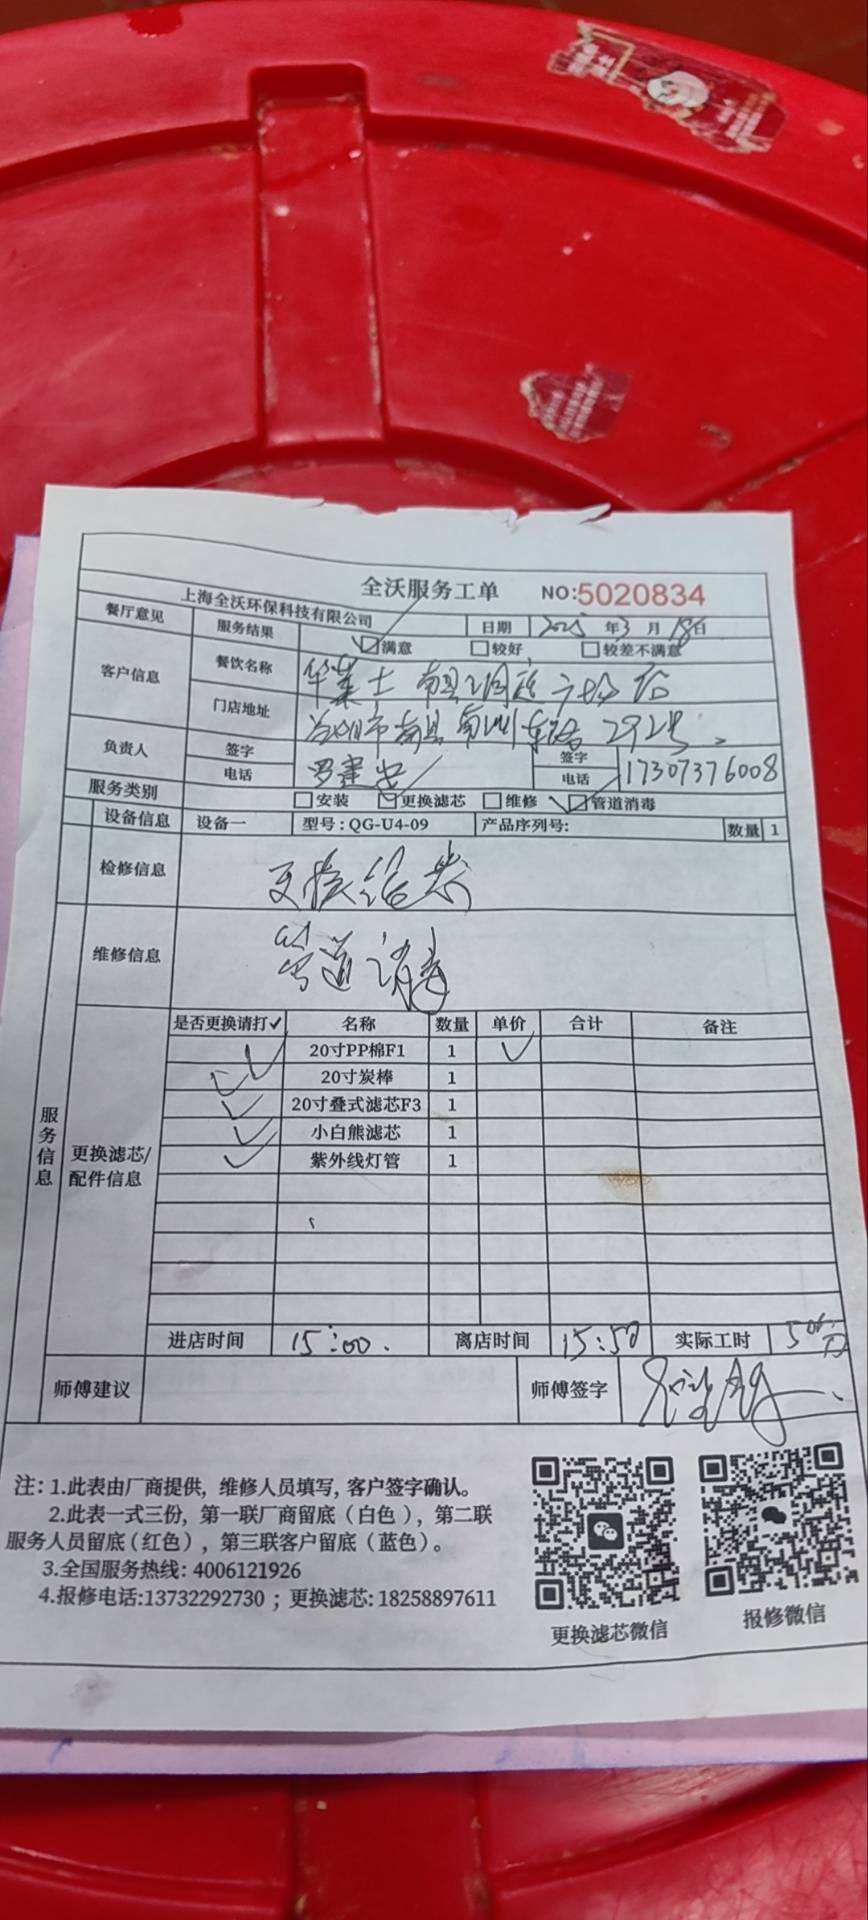 全沃服务工单 NO:5020834
上海全沃环保科技有限公司 日期 2025年3月18日
餐厅意见 服务结果 ☑满意 □较好 □较差不满意
客户信息 餐饮名称 华莱士 南县 广场店
门店地址 益阳市南县南洲东路292号
负责人 签字 罗建 签字
电话 电话 17307376008
服务类别 □安装 ☑更换滤芯 □维修 ☑管道消毒
设备信息 设备一 型号:QG-U4-09 产品序列号: 数量 1
检修信息 更换
维修信息 管道消毒
服务信息
更换滤芯/配件信息
是否更换请打✓ 名称 数量 单价 合计 备注
✓ 20寸PP棉F1 1 ✓
✓ 20寸炭棒 1
✓ 20寸叠式滤芯F3 1
✓ 小白熊滤芯 1
✓ 紫外线灯管 1
进店时间 15:00. 离店时间 15:50 实际工时 50分
师傅建议 师傅签字
注: 1.此表由厂商提供, 维修人员填写, 客户签字确认。
2.此表一式三份, 第一联厂商留底（白色）, 第二联
服务人员留底（红色）, 第三联客户留底（蓝色）。
3.全国服务热线: 4006121926
4.报修电话:13732292730 ; 更换滤芯: 18258897611
更换滤芯微信 报修微信